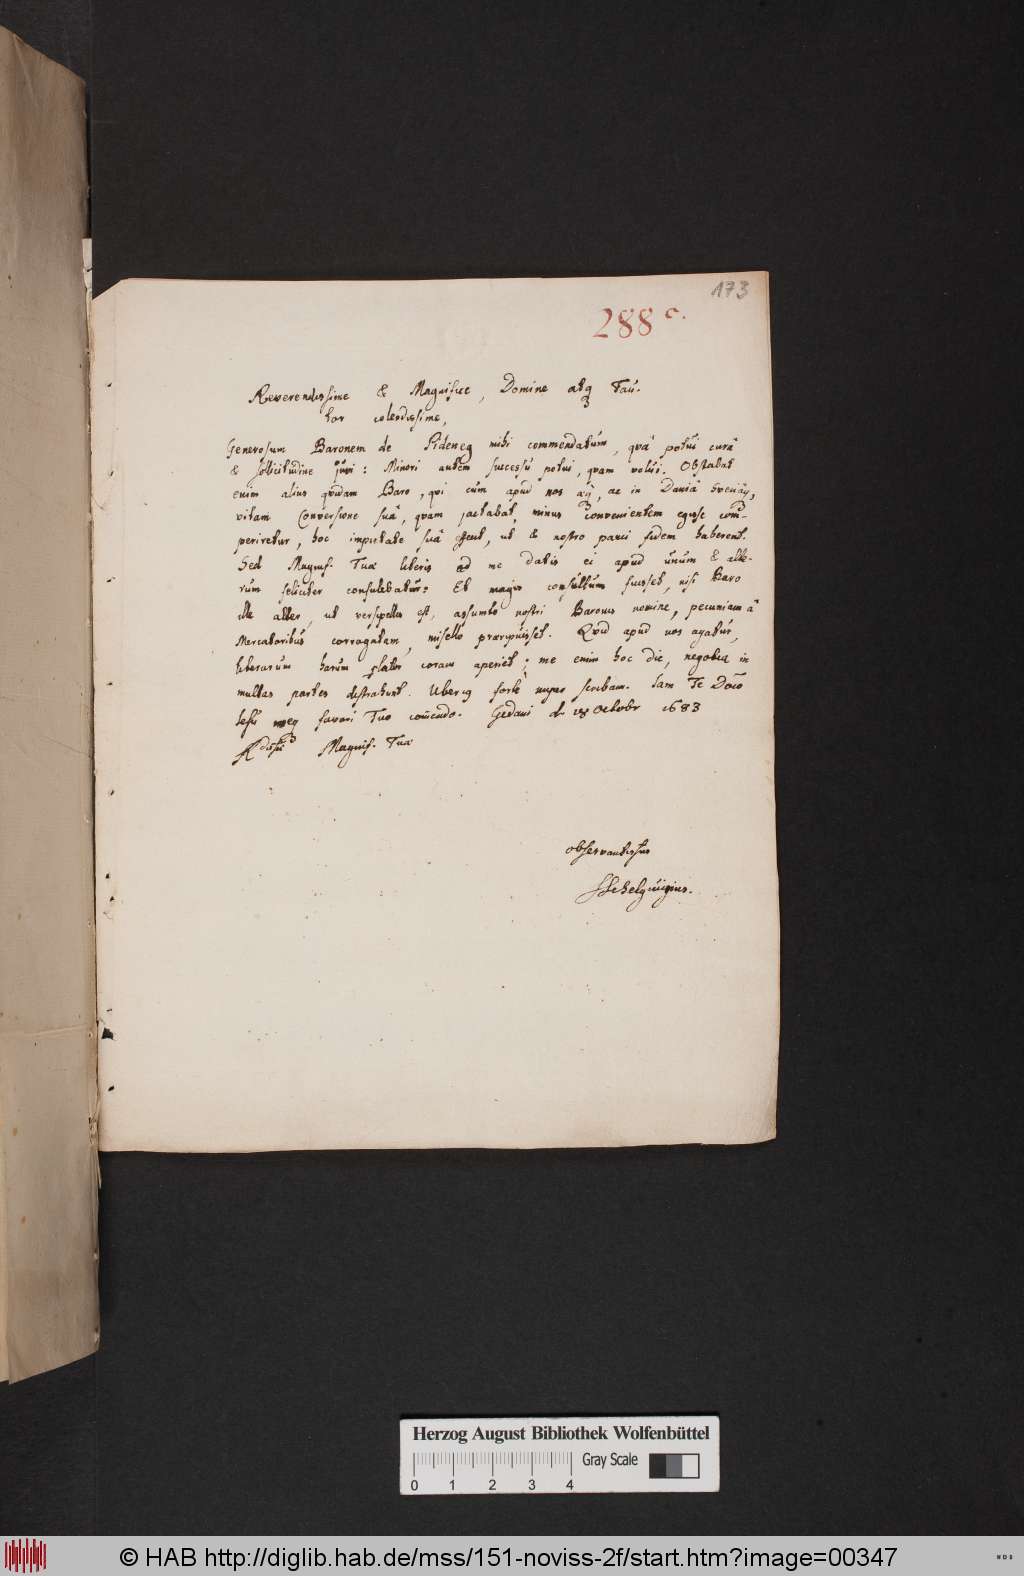 173
288 c.
Reverendissime & Magnifice, Domine atq Fau-
tor colendissime,
Generosum Baronem de mihi commendatum, quâ potui curâ
& sollicitudine juvi: Minori autem successu potui, quam volui. Obstabat
enim alius quidam Baro, qui cum apud nos ac in Daniâ
vitam Conversione suâ, quam jactabat, minus convenientem egisse com-
periretur, hoc impietate suâ effecit, ut & nostro pauci fidem haberent.
Sed Magnif. Tuæ literis ad me datis ei apud unum & alte-
rum feliciter consulebatur: Et magis consultum fuisset, nisi Baro
ille alter, ut versipellis est, assumto nostri Baronis nomine, pecuniam â
Mercatoribus corrogatam, misello præripuisset. Qvid apud nos agatur,
literarum harum lator coram aperiet; me enim hoc die, negotia in
multas partes distrahunt. Uberiq fortè scribam. Iam Te Dño
Iesu meq favori Tuo com̄endo. Gedani d. 18 Octobr 1683
Magnif. Tuæ
observantissimus
SSchelguigius.
Herzog August Bibliothek Wolfenbüttel
Gray Scale
0 1 2 3 4
© HAB http://diglib.hab.de/mss/151-noviss-2f/start.htm?image=00347